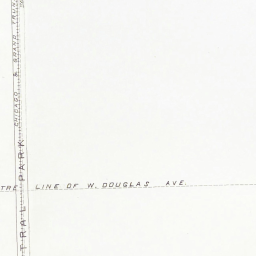 CHICAGO & GRAND TRUN
TRAL PARK
TRE LINE OF W. DOUGLAS AVE.